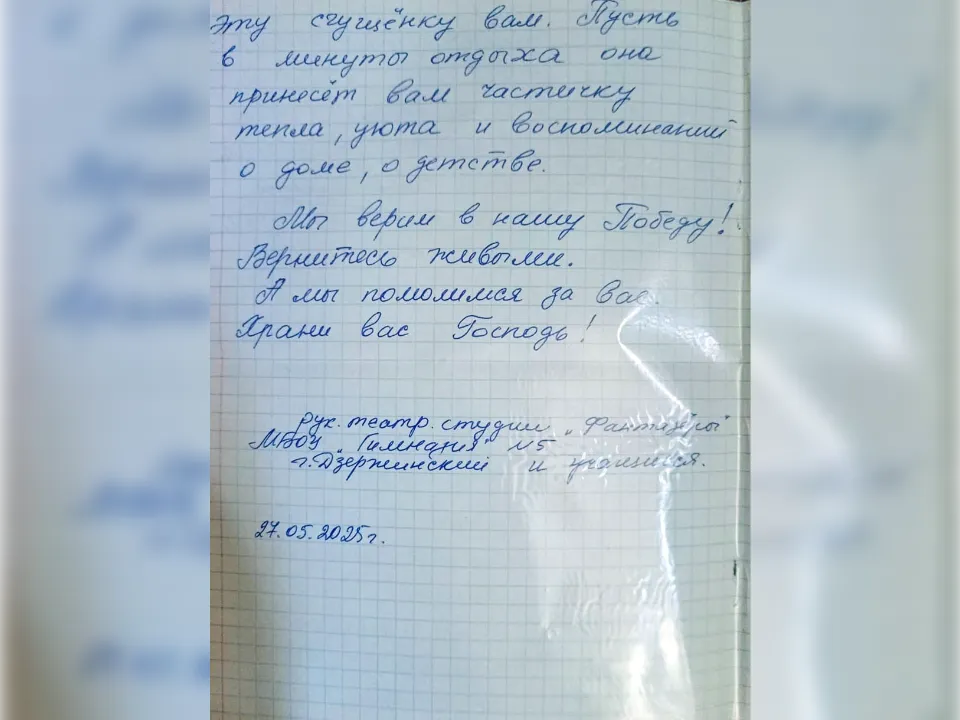 эту сгущёнку вам. Пусть
в минуты отдыха она
принесёт вам частичку
тепла, уюта и воспоминаний
о доме, о детстве.
Мы верим в нашу Победу!
Вернитесь живыми.
А мы помолимся за вас.
Храни вас Господь!
рук. театр. студии "Фантазёры"
МБОУ "Гимназия" №5
г. Дзержинский и учащиеся.
27.05.2025г.